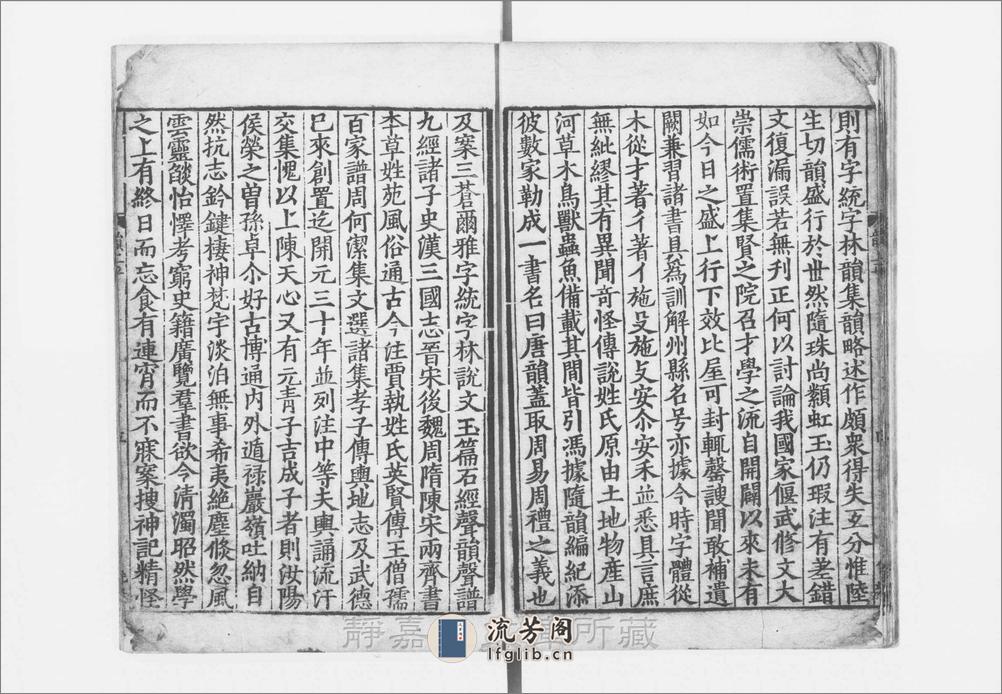 則有字統字林韻集韻略述作頗衆得失互分惟陸
生切韻盛行於世然隨珠尚纇虹玉仍瑕注有差錯
文復漏誤若無刊正何以討論我國家偃武修文大
崇儒術置集賢之院召才學之流自開闢以來未有
如今日之盛上行下效比屋可封輒罄謏聞敢補遺
闕兼習諸書具為訓解州縣名号亦據今時字體從
木從才著彳著亻施殳施攵安尒安禾並悉具言庶
無紕繆其有異聞奇怪傳說姓氏原由土地物產山
河草木鳥獸蟲魚備載其間皆引馮據隨韻編紀添
彼數家勒成一書名曰唐韻蓋取周易周禮之義也
及案三蒼爾雅字統字林說文玉篇石經聲韻聲譜
九經諸子史漢三國志晉宋後魏周隋陳宋兩齊書
本草姓苑風俗通古今注賈執姓氏英賢傳王僧孺
百家譜周何潔集文選諸集孝子傳輿地志及武德
已來創置迄開元三十年並列注中等夫輿誦流汗
交集愧以上陳天心又有元青子吉成子者則汝陽
侯榮之曽孫卓尒好古博通內外遁禄巖嶺吐納自
然抗志鈐鍵棲神梵宇淡泊無事希夷絶塵倏忽風
雲靈燄怡懌考窮史籍廣覽羣書欲令清濁昭然學
之上有終日而忘食有連宵而不寐案搜神記精怪
靜嘉 所藏
流芳阁
lfglib.cn